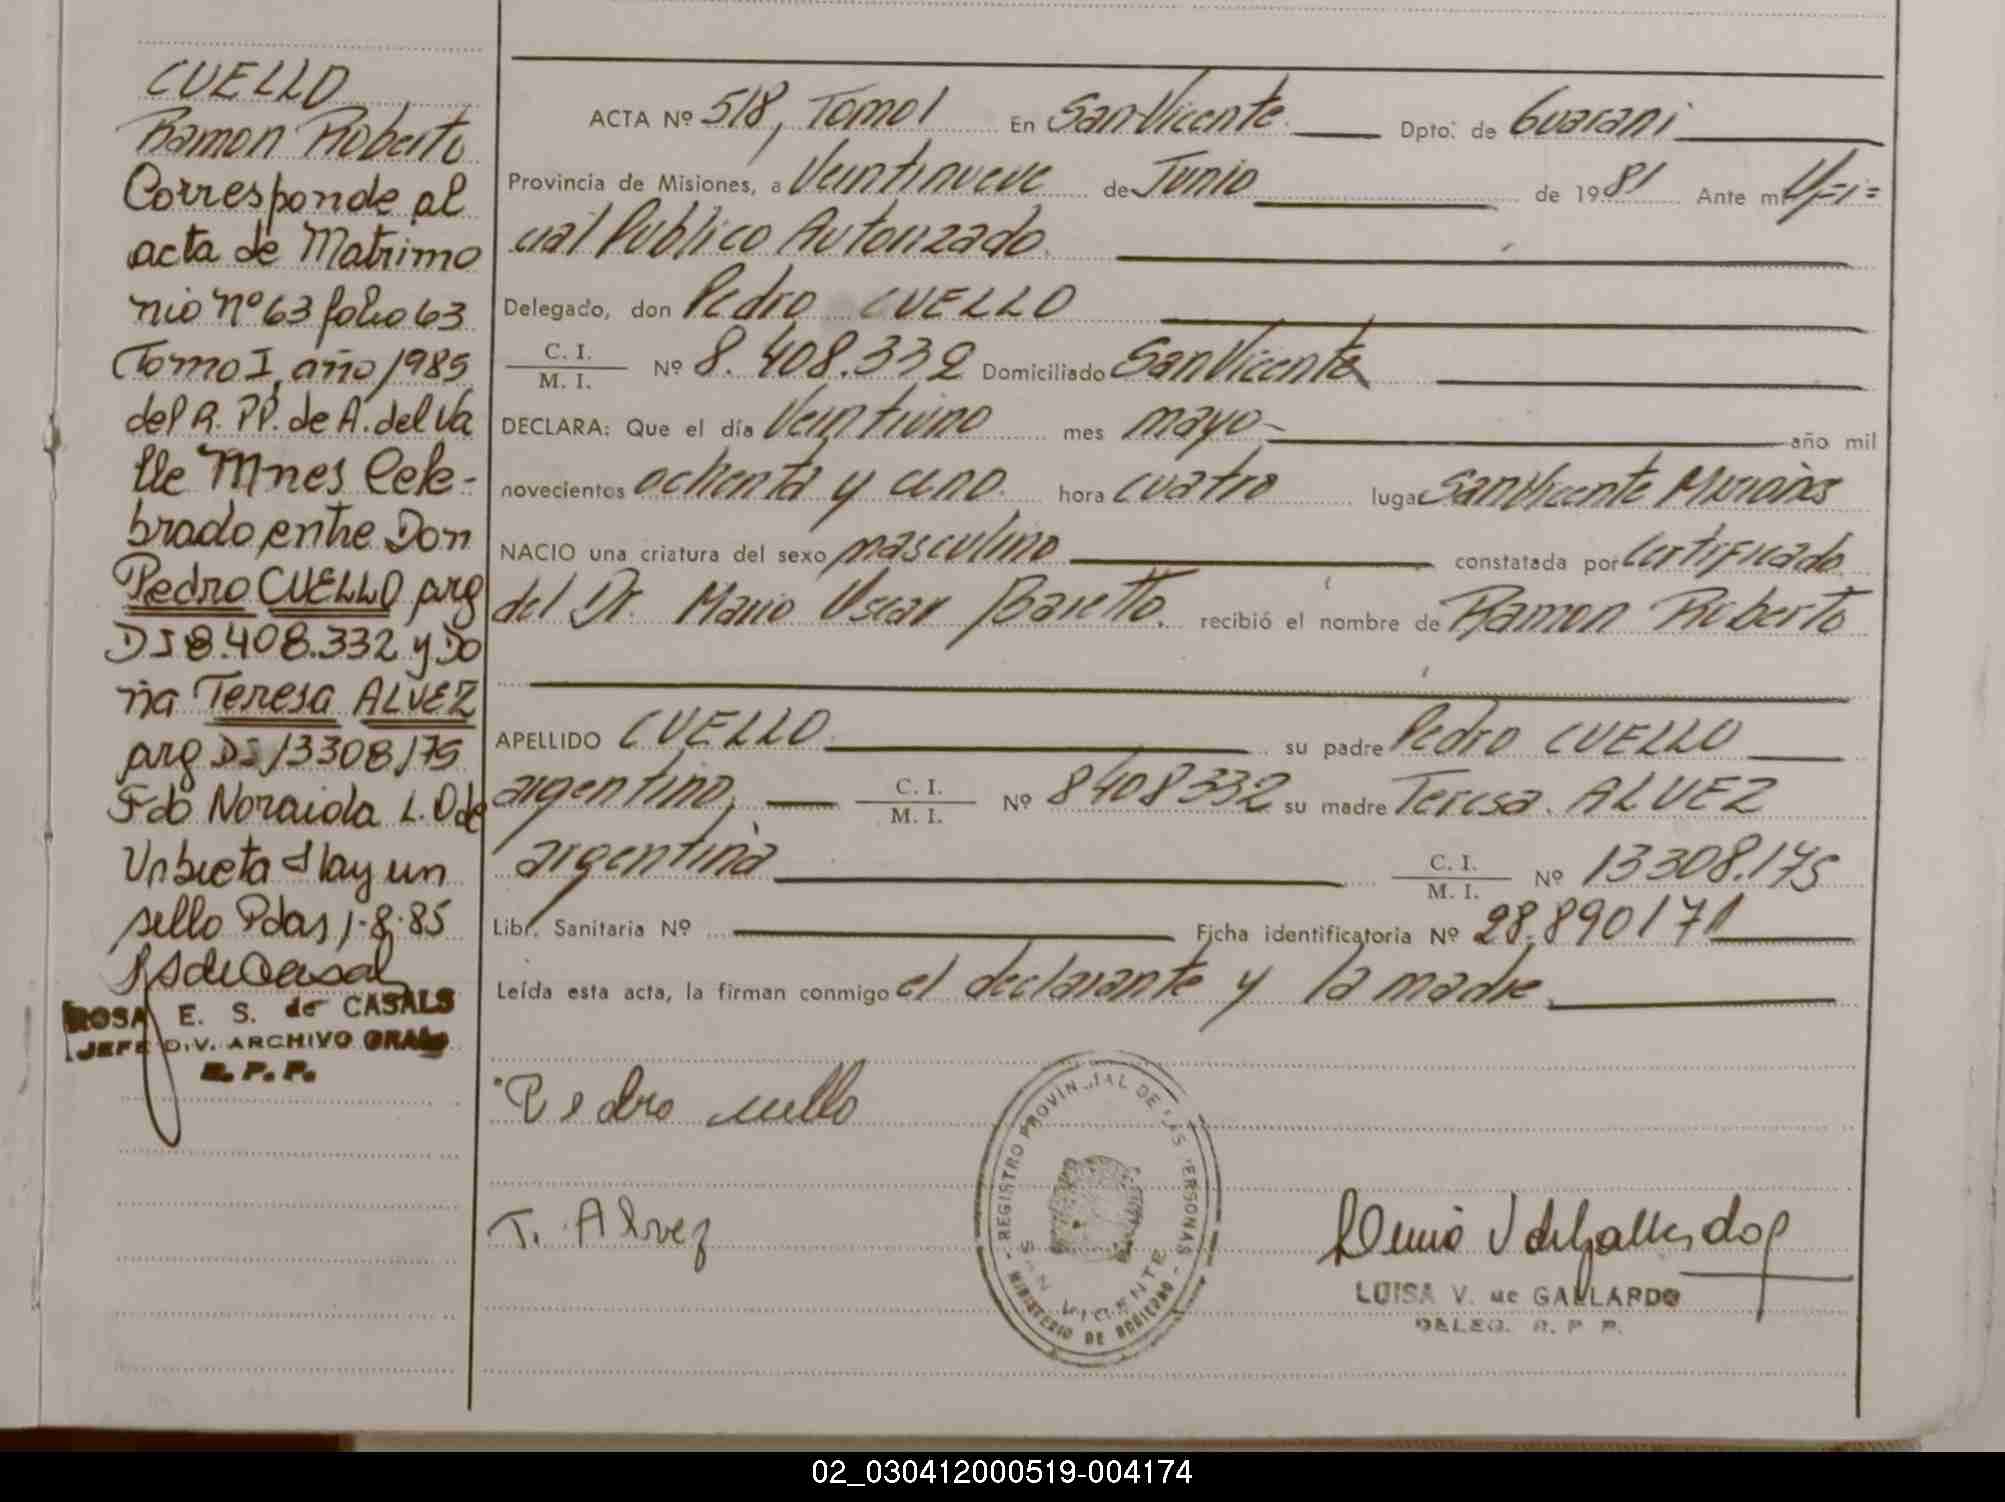 CUELLO
Ramon Roberto
Corresponde al
acta de Matrimo
nio Nº 63 folio 63
Tomo I, año 1985
del R. PP. de A. del Va
lle Mnes Cele-
brado entre Don
Pedro CUELLO arg
DI 8.408.332 y Do
ña Teresa ALVEZ
arg DI 13308175
Fdo Noraida L. O de
Urbieta Hay un
sello Pdas 1-8-85
ROSA E. S. de CASALS
JEFE DIV. ARCHIVO GRAL
R. P. P.
ACTA Nº 518, Tomo I En San Vicente Dpto. de Guarani
Provincia de Misiones, a Veintinueve de Junio de 1981 Ante mi Ofi=
cial Publico Autorizado
Delegado, don Pedro CUELLO
C. I.
M. I. Nº 8.408.332 Domiciliado San Vicente
DECLARA: Que el día Veintiuno mes mayo año mil
novecientos ochenta y uno hora cuatro lugar San Vicente Misiones
NACIO una criatura del sexo masculino constatada por Certificado
del Dr. Mario Oscar Baretto. recibió el nombre de Ramon Roberto
APELLIDO CUELLO su padre Pedro CUELLO
argentino, C. I.
M. I. Nº 8408332 su madre Teresa. ALVEZ
argentina C. I.
M. I. Nº 13308.175
Libr. Sanitaria Nº Ficha identificatoria Nº 28.890171
Leída esta acta, la firman conmigo el declarante y la madre
Pedro cuello
T. Alvez
REGISTRO PROVINCIAL DE LAS PERSONAS
SAN VICENTE
MINISTERIO DE GOBIERNO
LUISA V. de GALLARDO
DELEG. R. P. P.
02_030412000519-004174